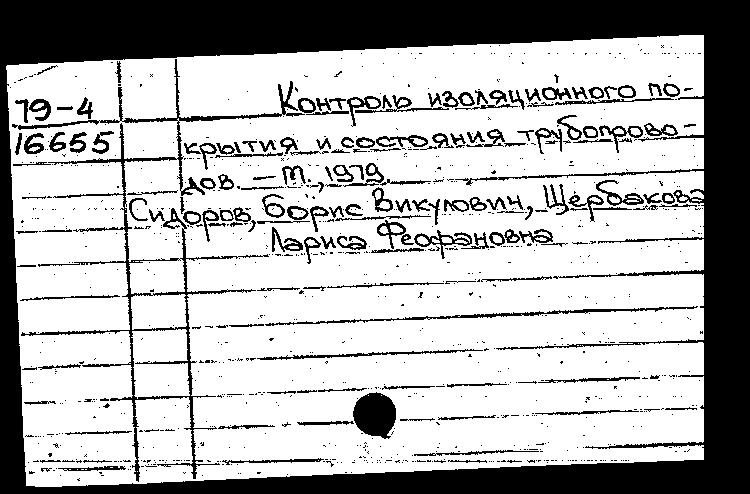 79-4
16655
Контроль изоляционного по-
крытия и состояния трубопрово-
дов. — М., 1979.
Сидоров, Борис Викулович, Щербакова
Лариса Феофановна